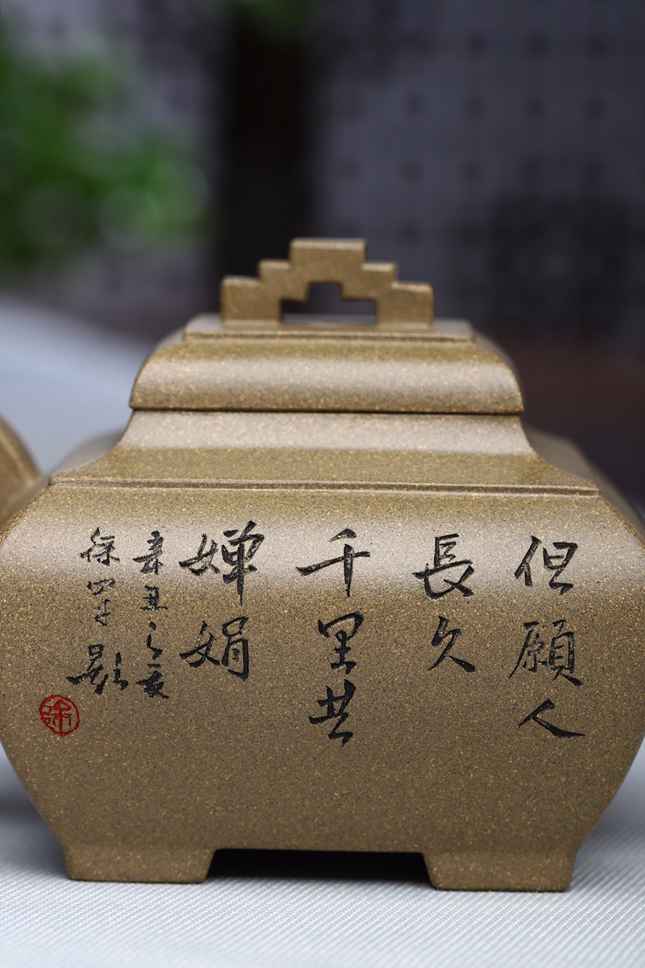 但願人
長久
千里共
嬋娟
辛丑之夏
徐